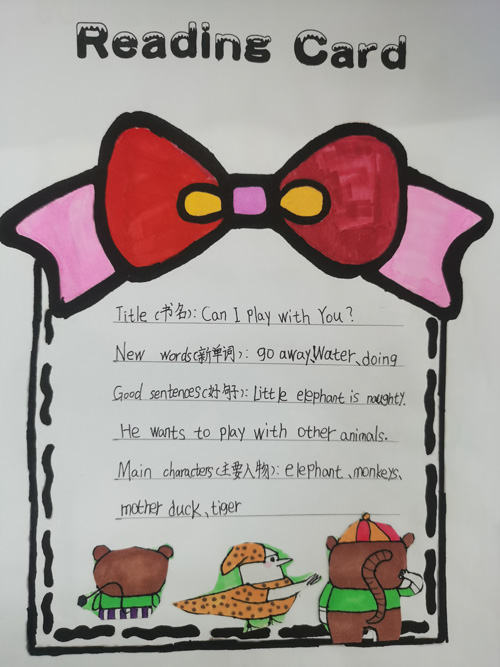 Reading Card
Title (书名): Can I play with You?
New words(新单词): go away、Water、doing
Good sentences(好句子): Little elephant is naughty.
He wants to play with other animals.
Main characters(主要人物): elephant、monkeys、
mother duck、tiger